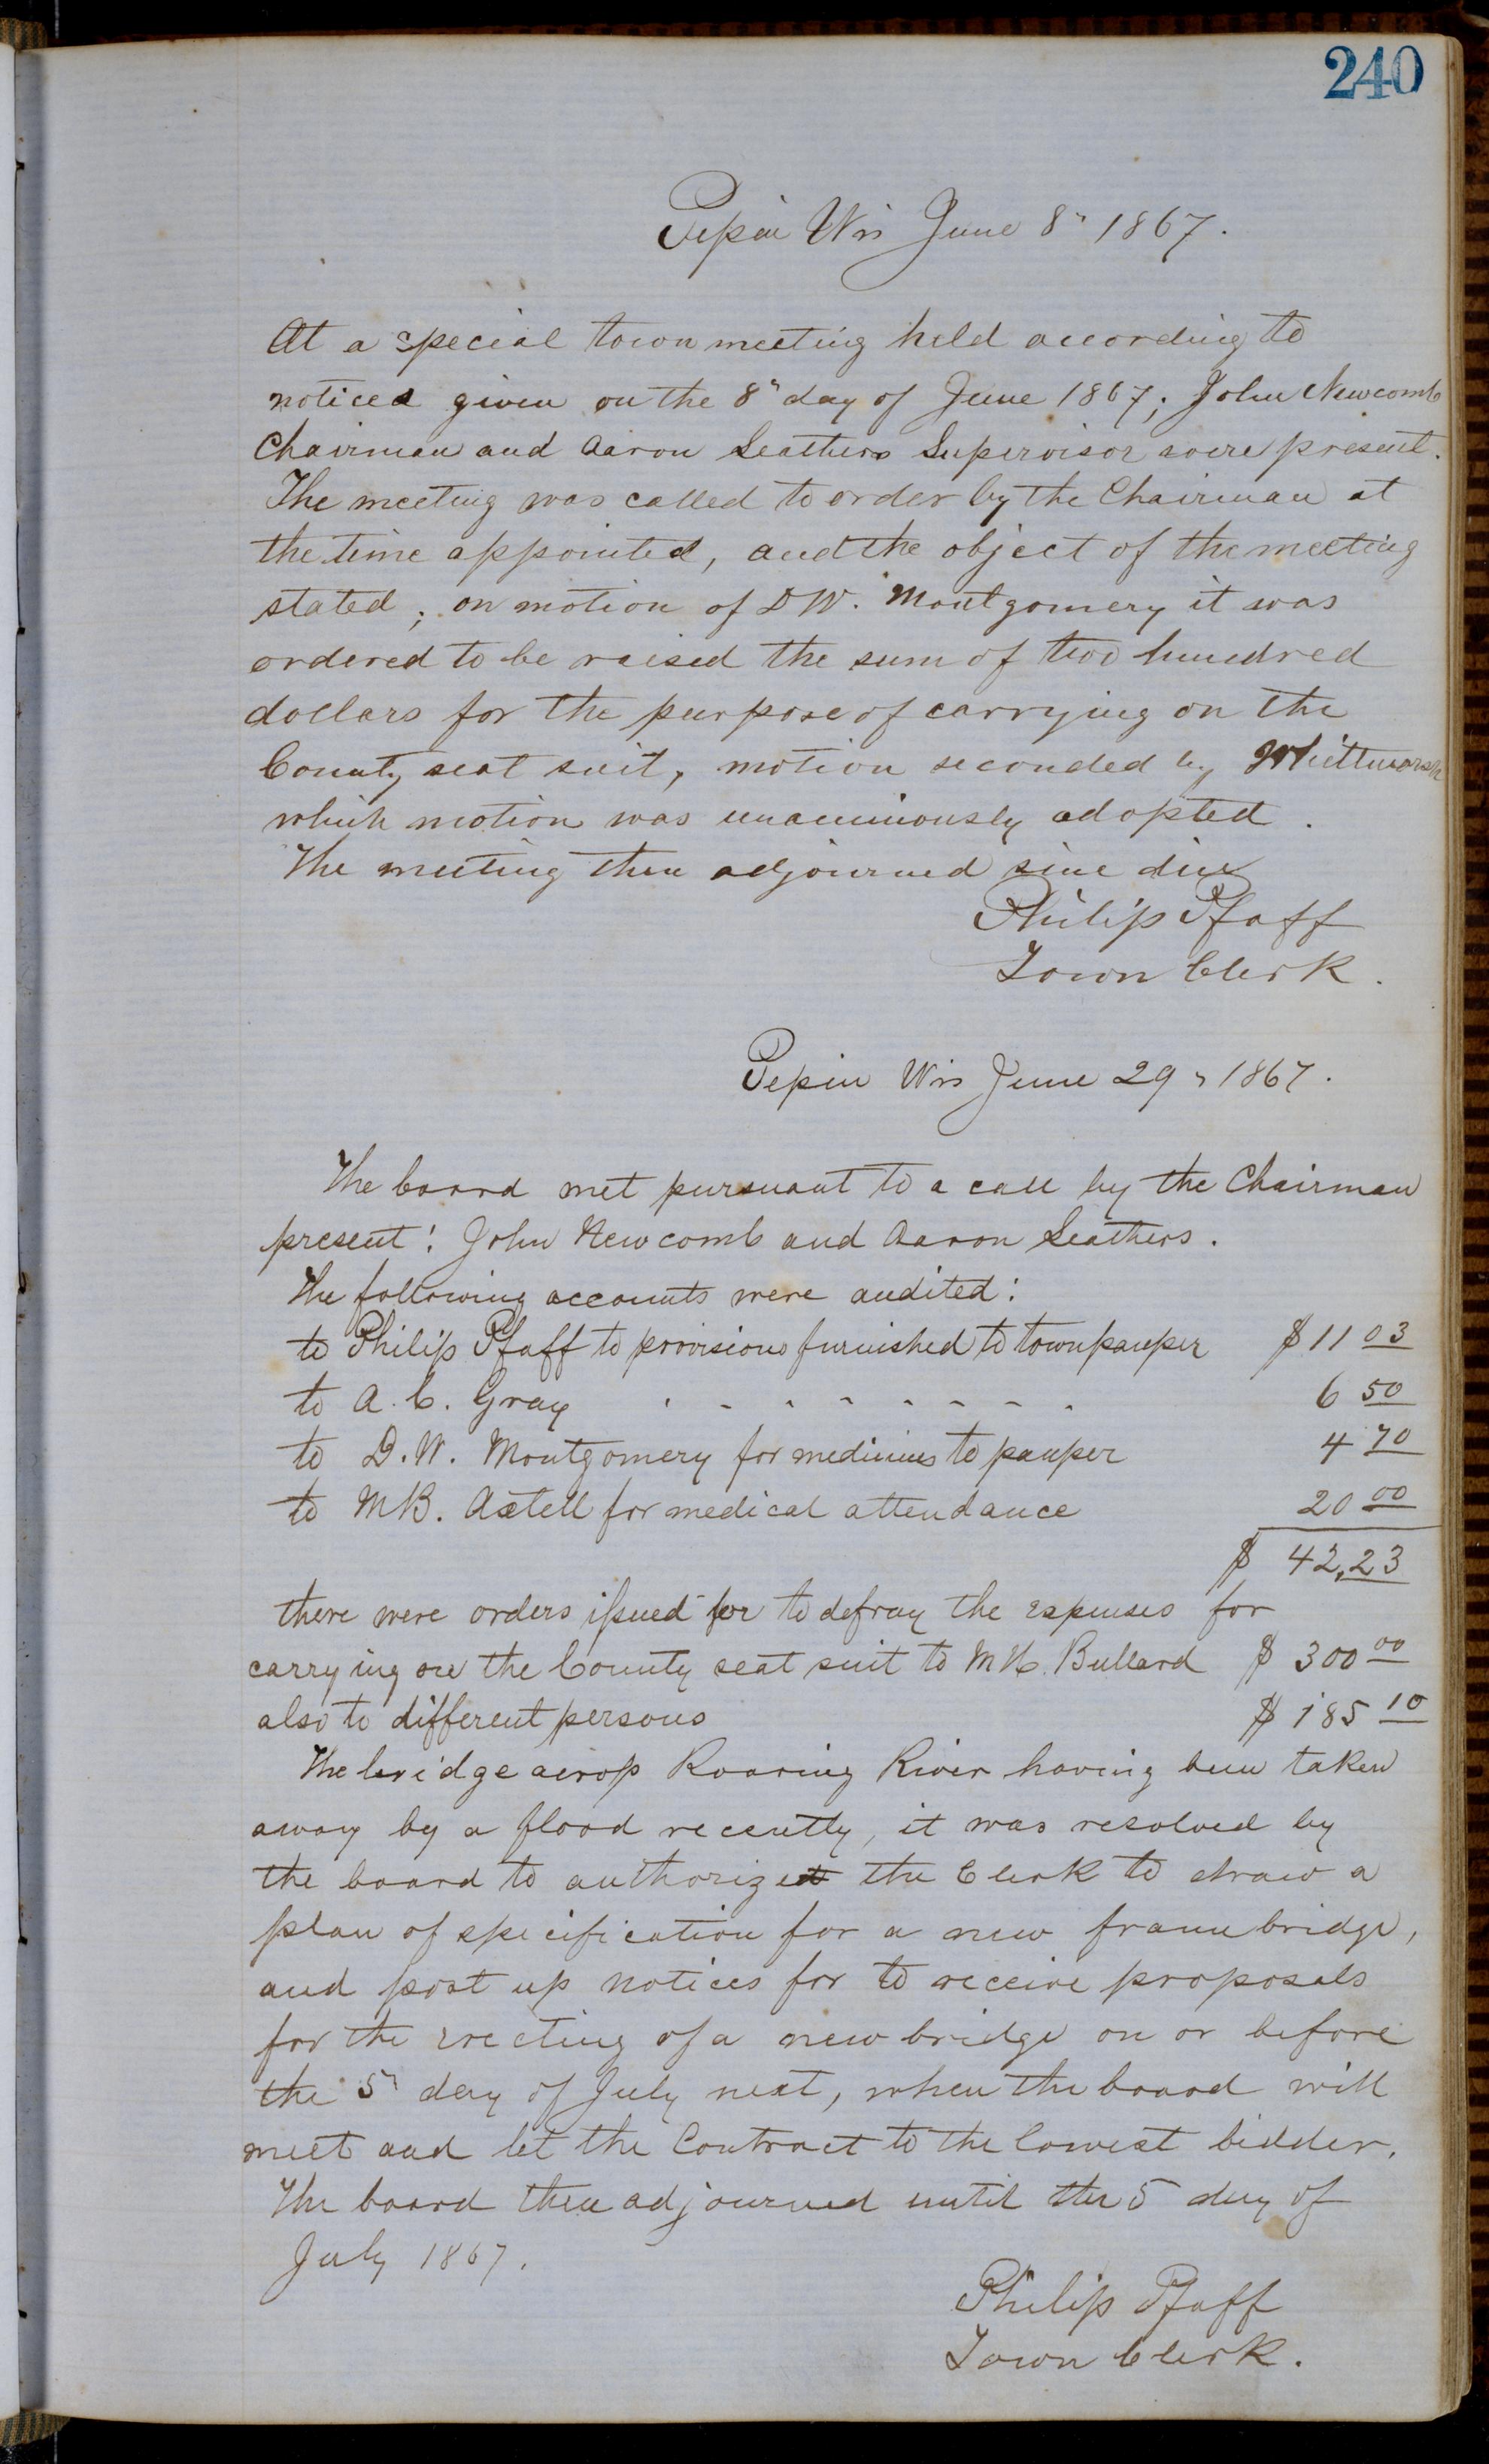 240
Pepin Wis June 8" 1867.
At a special town meeting held according to
notices given on the 8" day of June 1867; John Newcomb
Chairman and Aaron Leathers Supervisor were present.
The meeting was called to order by the Chairman at
the time appointed, and the object of the meeting
stated; on motion of D W. Montgomery it was
ordered to be raised the sum of two hundred
dollars for the purpose of carrying on the
County seat suit, motion seconded by
which motion was unanimously adopted.
The meeting then adjourned sine die
Philip Pfaff
Town Clerk.
Pepin Wis June 29 " 1867.
The board met pursuant to a call by the Chairman
present: John Newcomb and Aaron Leathers.
The following accounts were audited:
to Philip Pfaff to provisions furnished to town pauper $ 11 03
to A. C. Gray " " " " " " " " 6 50
to D. W. Montgomery for medicines to pauper 4 70
to M B. Axtell for medical attendance 20 00
$ 42,23
there were orders issued for to defray the expenses for
carrying on the County seat suit to Bullard $ 300 00
also to different persons $ 185 10
The bridge across Roaring River having been taken
away by a flood recently, it was resolved by
the board to authorize the Clerk to draw a
plan of specification for a new frame bridge,
and post up notices for to receive proposals
for the erecting of a new bridge on or before
the 5" day of July next, when the board will
meet and let the Contract to the lowest bidder.
The board then adjourned until the 5 day of
July 1867.
Philip Pfaff
Town Clerk.